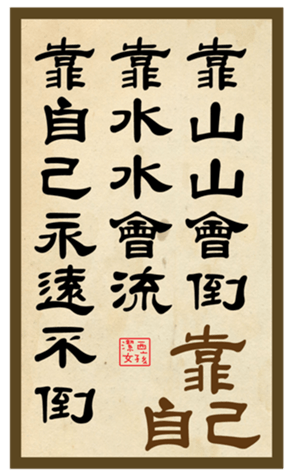 靠山山會倒
靠水水會流
靠自己永遠不倒
靠
自己